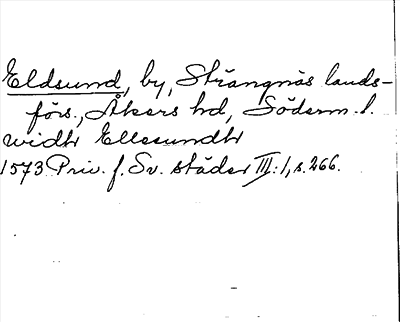 Eldsund, by, Strängnäs lands-
förs., Åkers hd, Söderm. l.
widh Ellesundh
1573 Priv. f. Sv. städer III:1, s. 266.